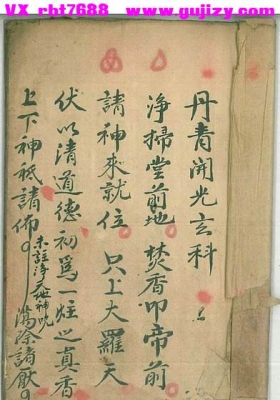 VX_rbt7688 www.gujizy.com
丹青開光玄科
淨掃堂前地 焚香叩帝前
請神來就位 只上大羅天
伏以清道德初為一炷之真香
上下神祇請佈。